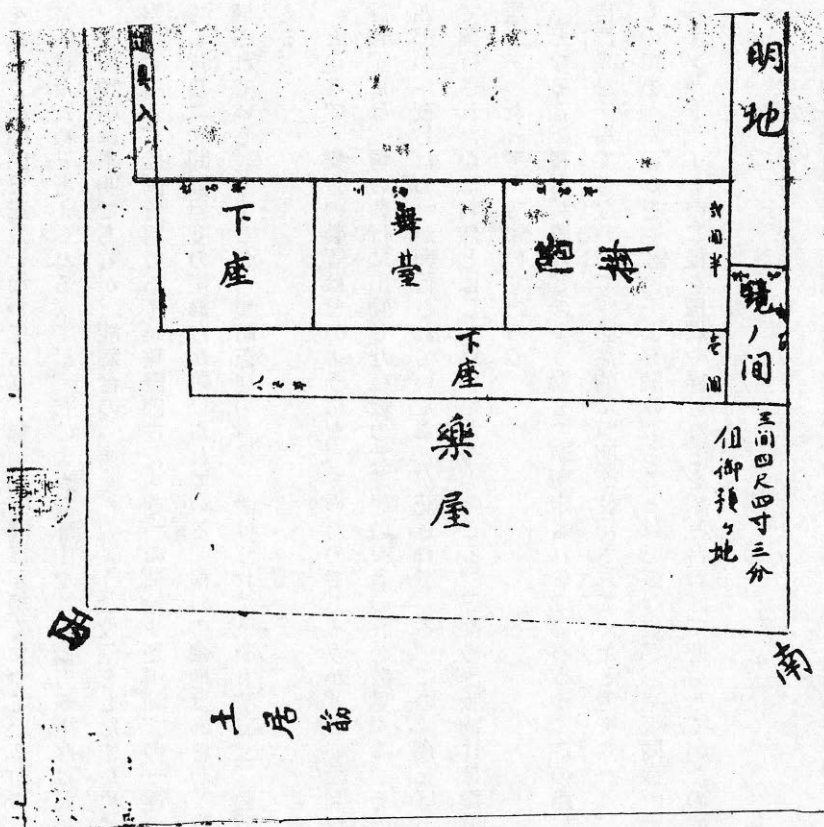 明地
具入
下座
舞臺
階掛
弐間半
鏡ノ間
下座
壱間
樂屋
三間四尺四寸三分
但御預ケ地
西
南
土居筋